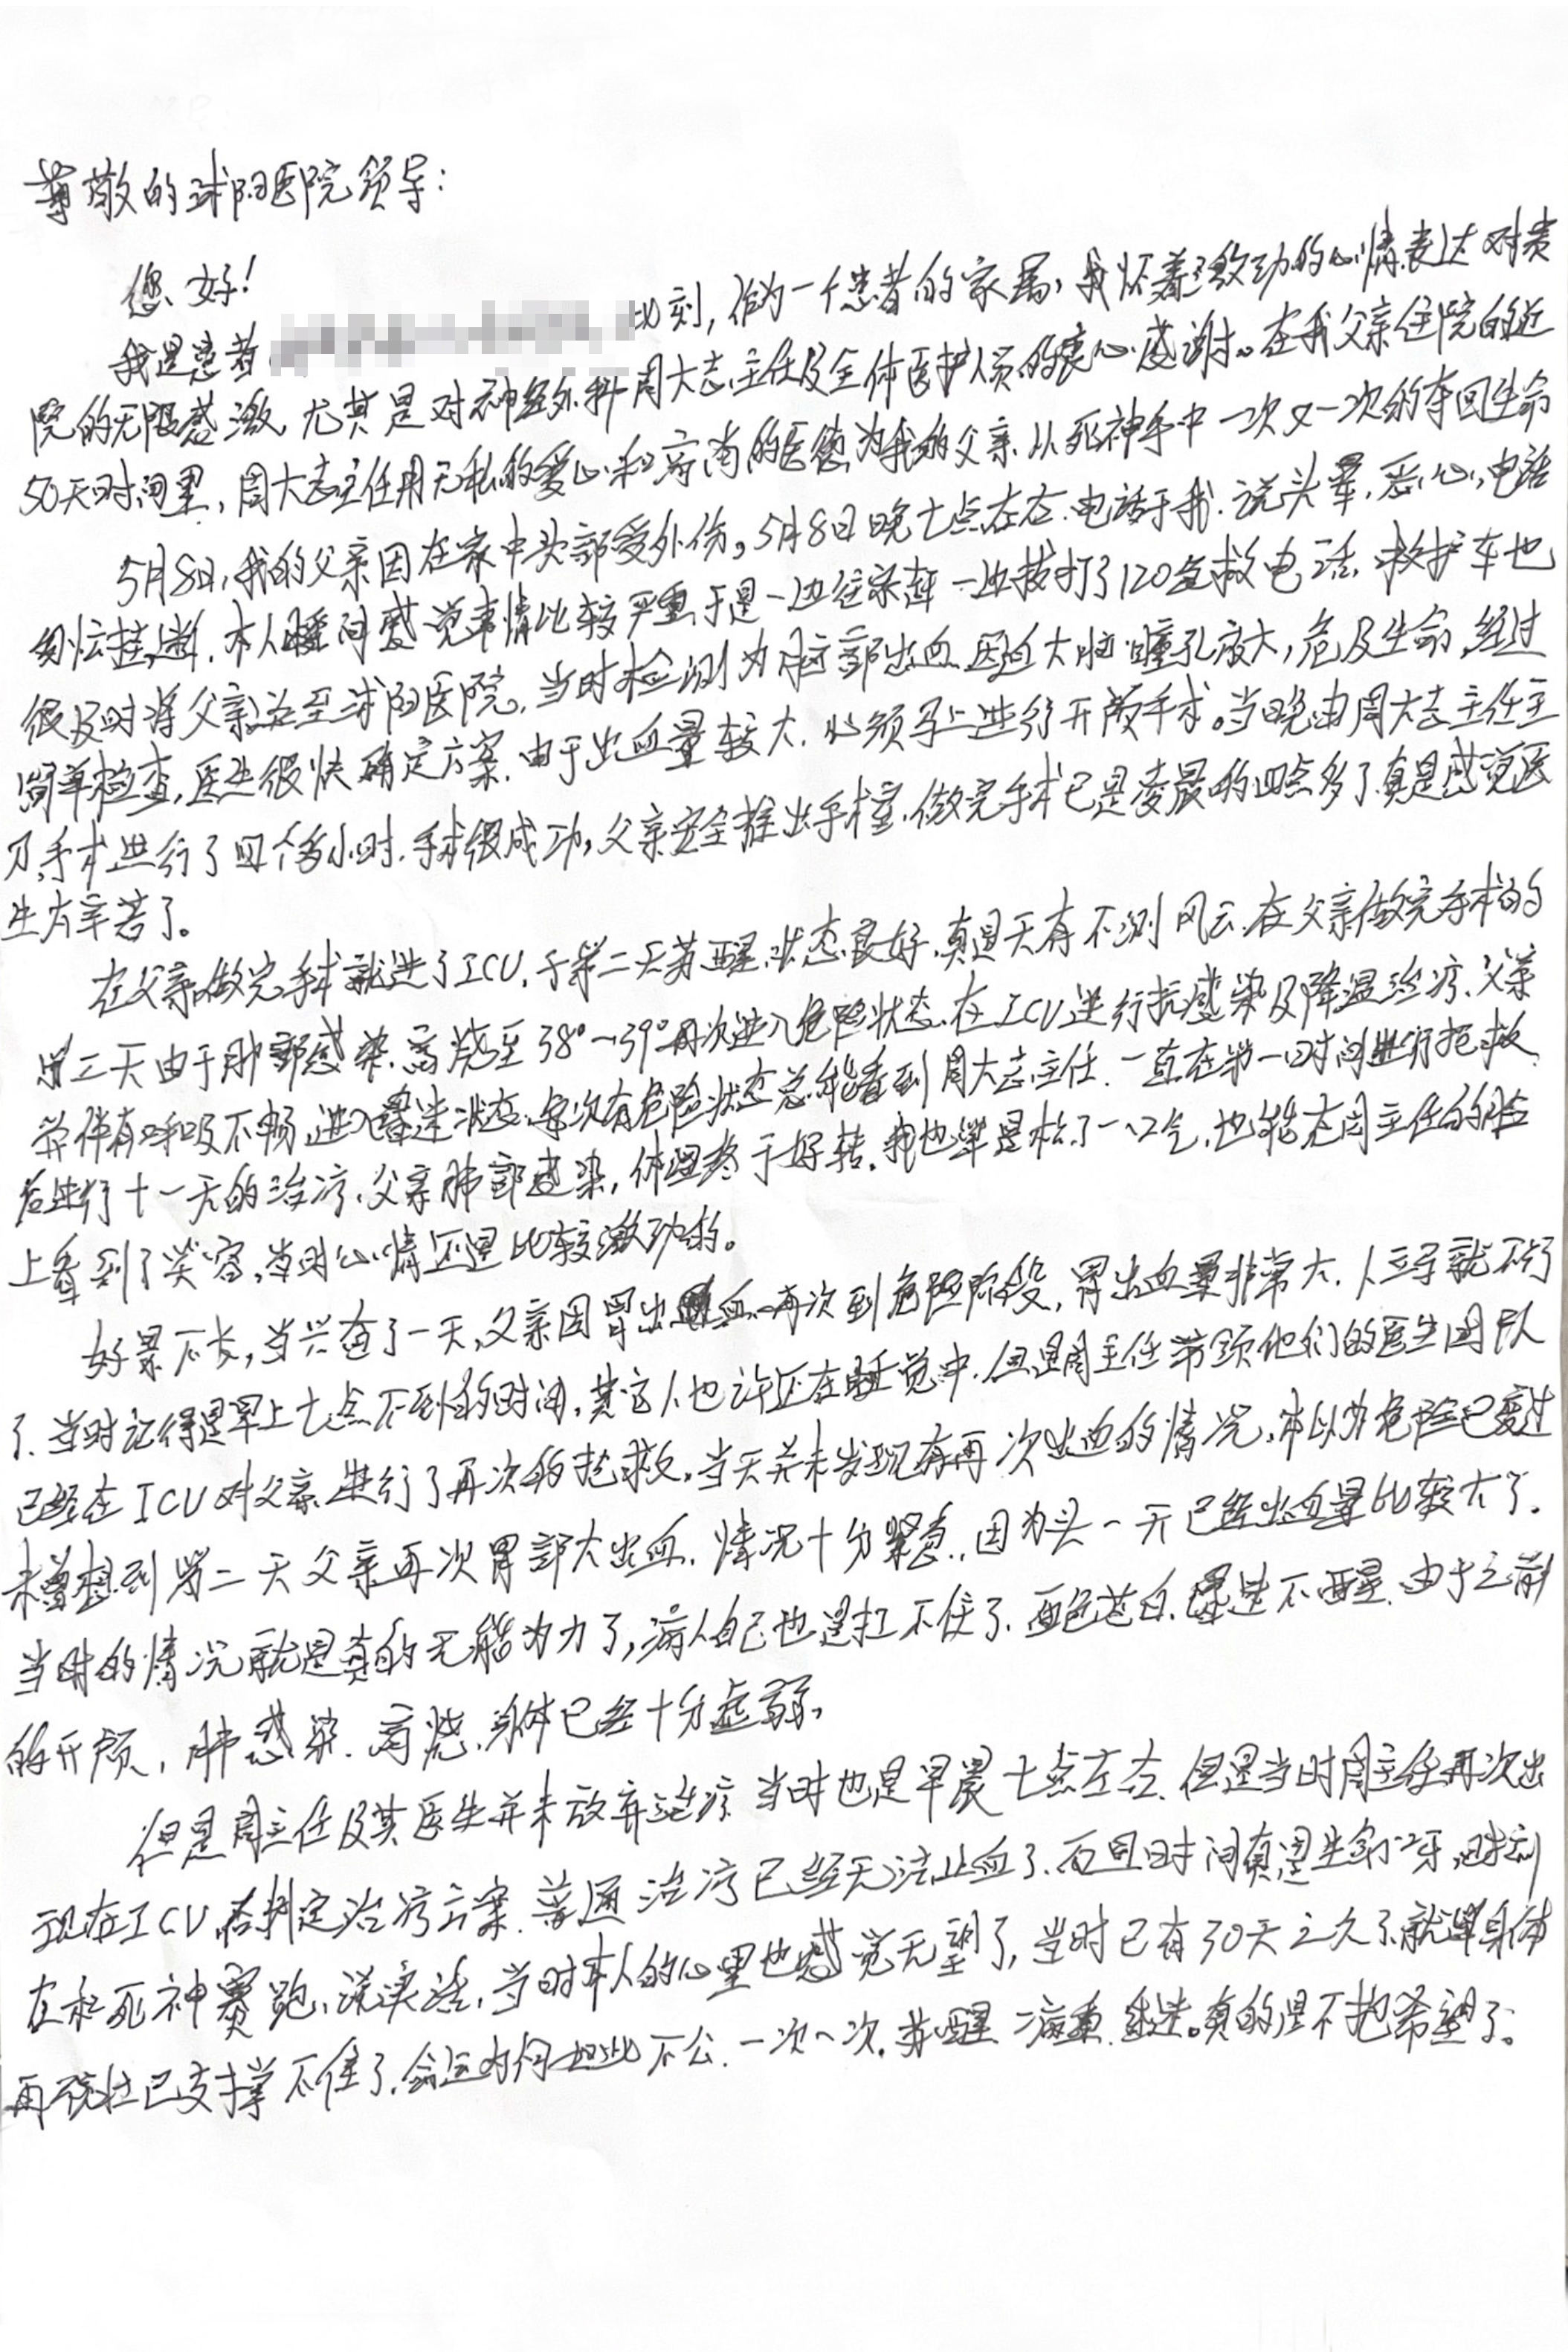 尊敬的球阳医院领导：
您好！
我是患者 此刻，作为一个患者的家属，我怀着激动的心情表达对贵
院的无限感激，尤其是对神经外科周大志主任及全体医护人员的衷心感谢。在我父亲住院的近
50天时间里，周大志主任用无私的爱心和高尚的医德为我的父亲从死神手中一次又一次的夺回生命
5月8日，我的父亲因在家中头部受外伤，5月8日晚七点左右.电话于我.说头晕，恶心，电话
匆忙挂断.本人瞬间感觉事情比较严重，于是一边往家赶一边拨打了120急救电话，救护车也
很及时将父亲送至球阳医院，当时检测为脑部出血，因血大脑瞳孔放大，危及生命，经过
简单检查，医生很快确定方案，由于出血量较大，必须马上进行开颅手术。当晚由周大志主任主
刀，手术进行了四个多小时，手术很成功，父亲安全推出手术室，做完手术已是凌晨的四点多了真是感觉医
生太辛苦了。
在父亲做完手术就进了ICU，于第二天苏醒，状态良好，真是天有不测风云，在父亲做完手术的
第三天由于肺部感染，高烧至38°-39°再次进入危险状态，在ICU进行抗感染及降温治疗，父亲
常伴有呼吸不畅，进入昏迷状态，每次有危险状态总能看到周大志主任.一直在第一时间进行抢救
后进行十一天的治疗，父亲肺部感染，体温终于好转，我也算是松了一口气，也能在周主任的脸
上看到了笑容，当时心情还是比较激动的。
好景不长，当兴奋了一天，父亲因胃出血再次到危险阶段，胃出血量非常大，人立马就不行
了.当时记得是早上七点不到的时间，其它人也许还在睡觉中，但是周主任带领他们的医生团队
已经在ICU对父亲进行了再次的抢救，当天并未发现有再次出血的情况，本以为危险已度过
未曾想到第二天父亲再次胃部大出血，情况十分紧急，因为头一天已经出血量比较大了.
当时的情况就是真的无能为力了，病人自己也是扛不住了.面色苍白，昏迷不醒，由于之前
的开颅，肺感染.高烧，身体已经十分虚弱，
但是周主任及其医生并未放弃治疗，当时也是早晨七点左右，但是当时周主任再次出
现在ICU，制定治疗方案，普通治疗已经无法止血了，而且时间真是，时刻
在和死神赛跑，说实话，当时本人的心里也感觉无望了，当时已有30天之久了，就算身体
再强壮已支撑不住了，命运为何如此不公，一次一次，苏醒，病重，昏迷。真的是不抱希望了。